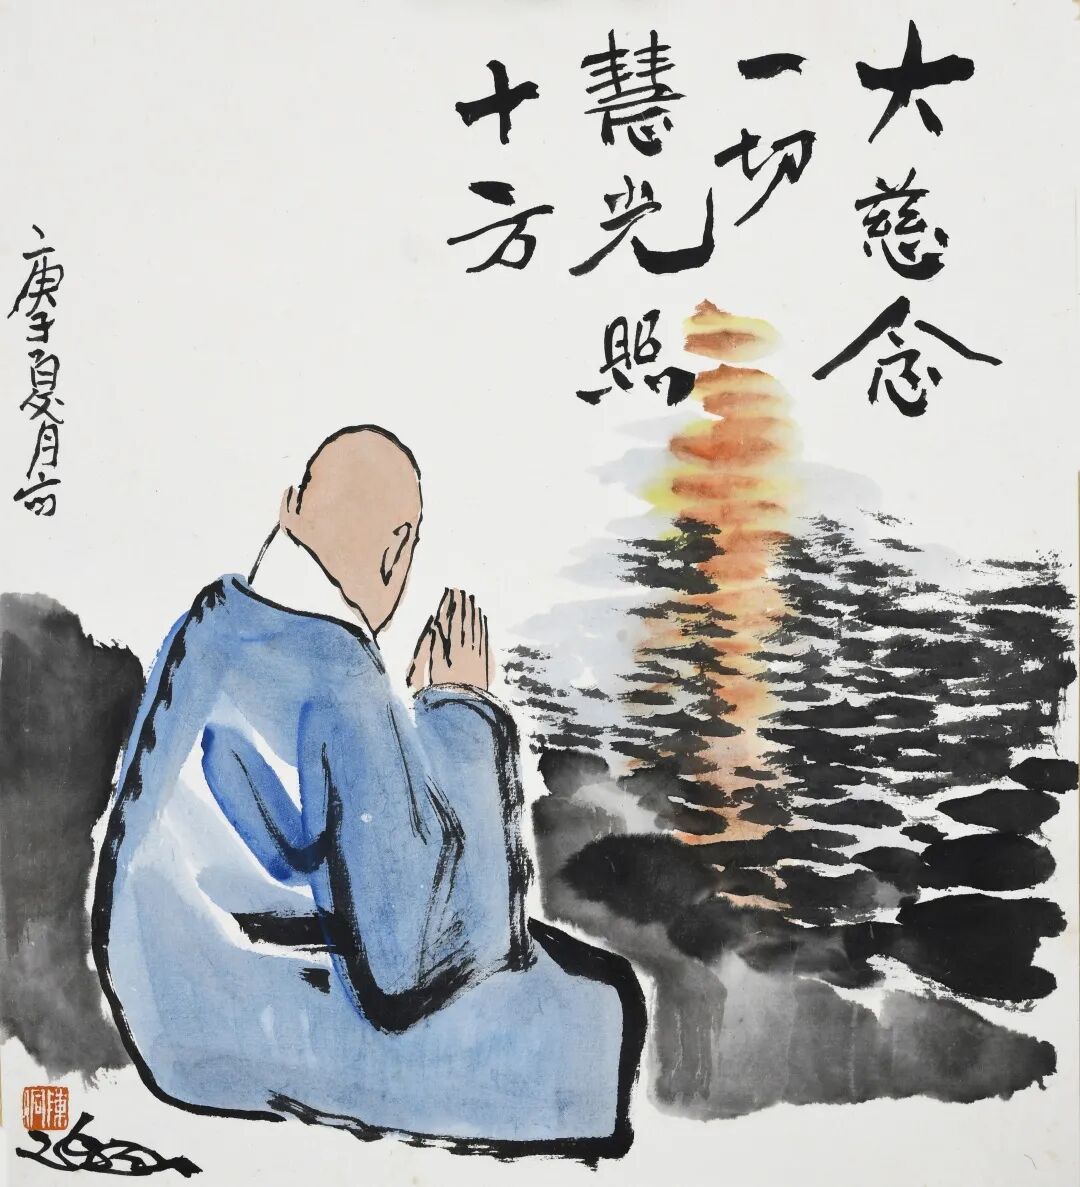 大慈念
一切
慧光照
十方
庚子夏月